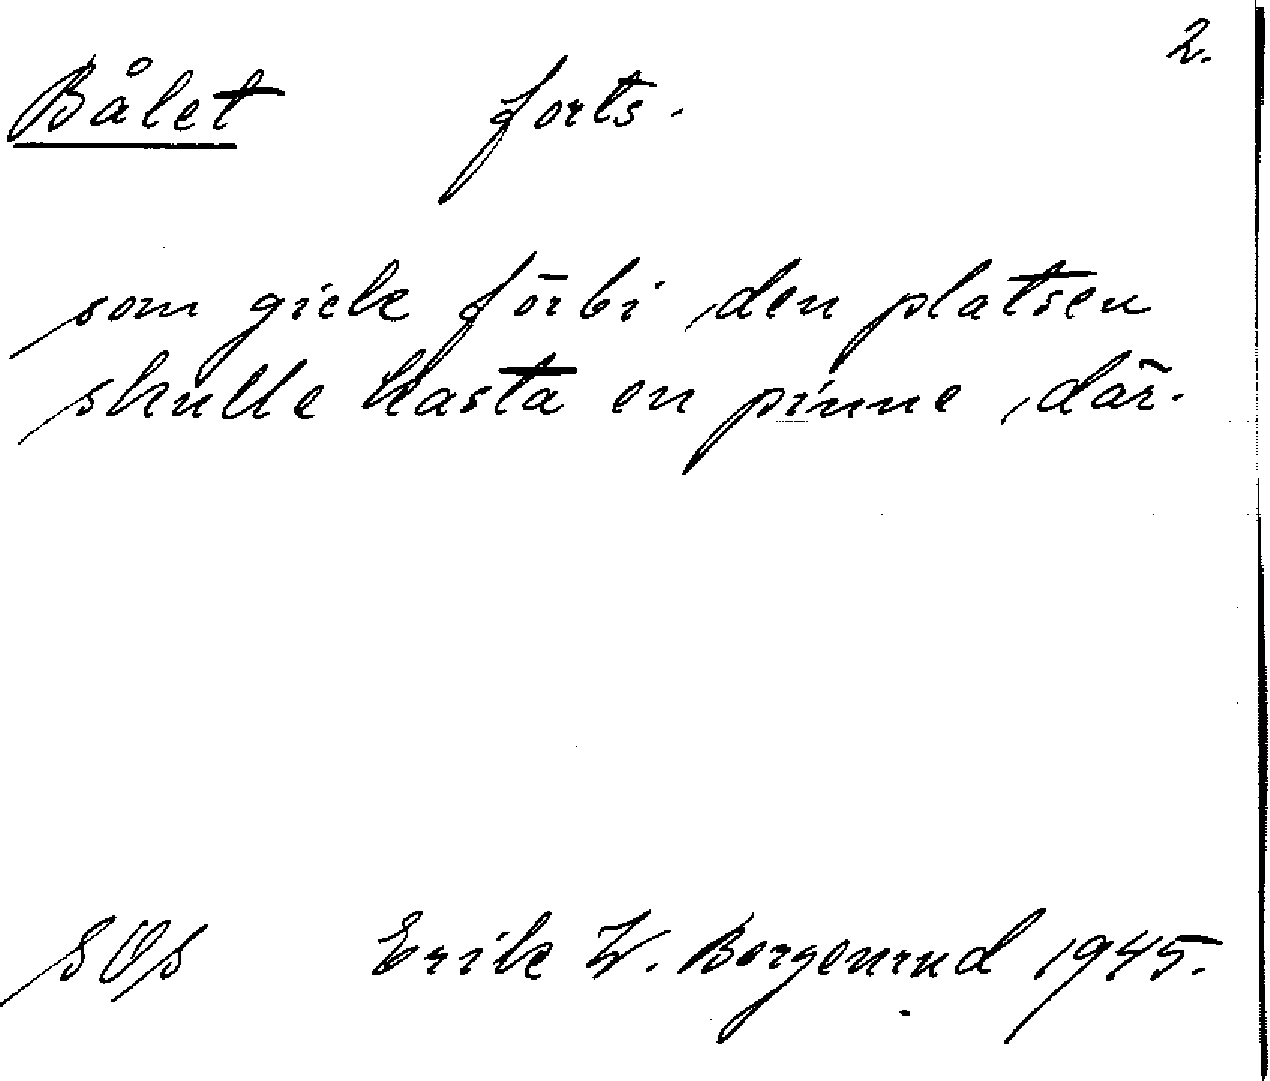 2.
Bålet forts.
som gick förbi den platsen
skulle kasta en pinne där.
SOS Erik W. Bergenrud 1945.